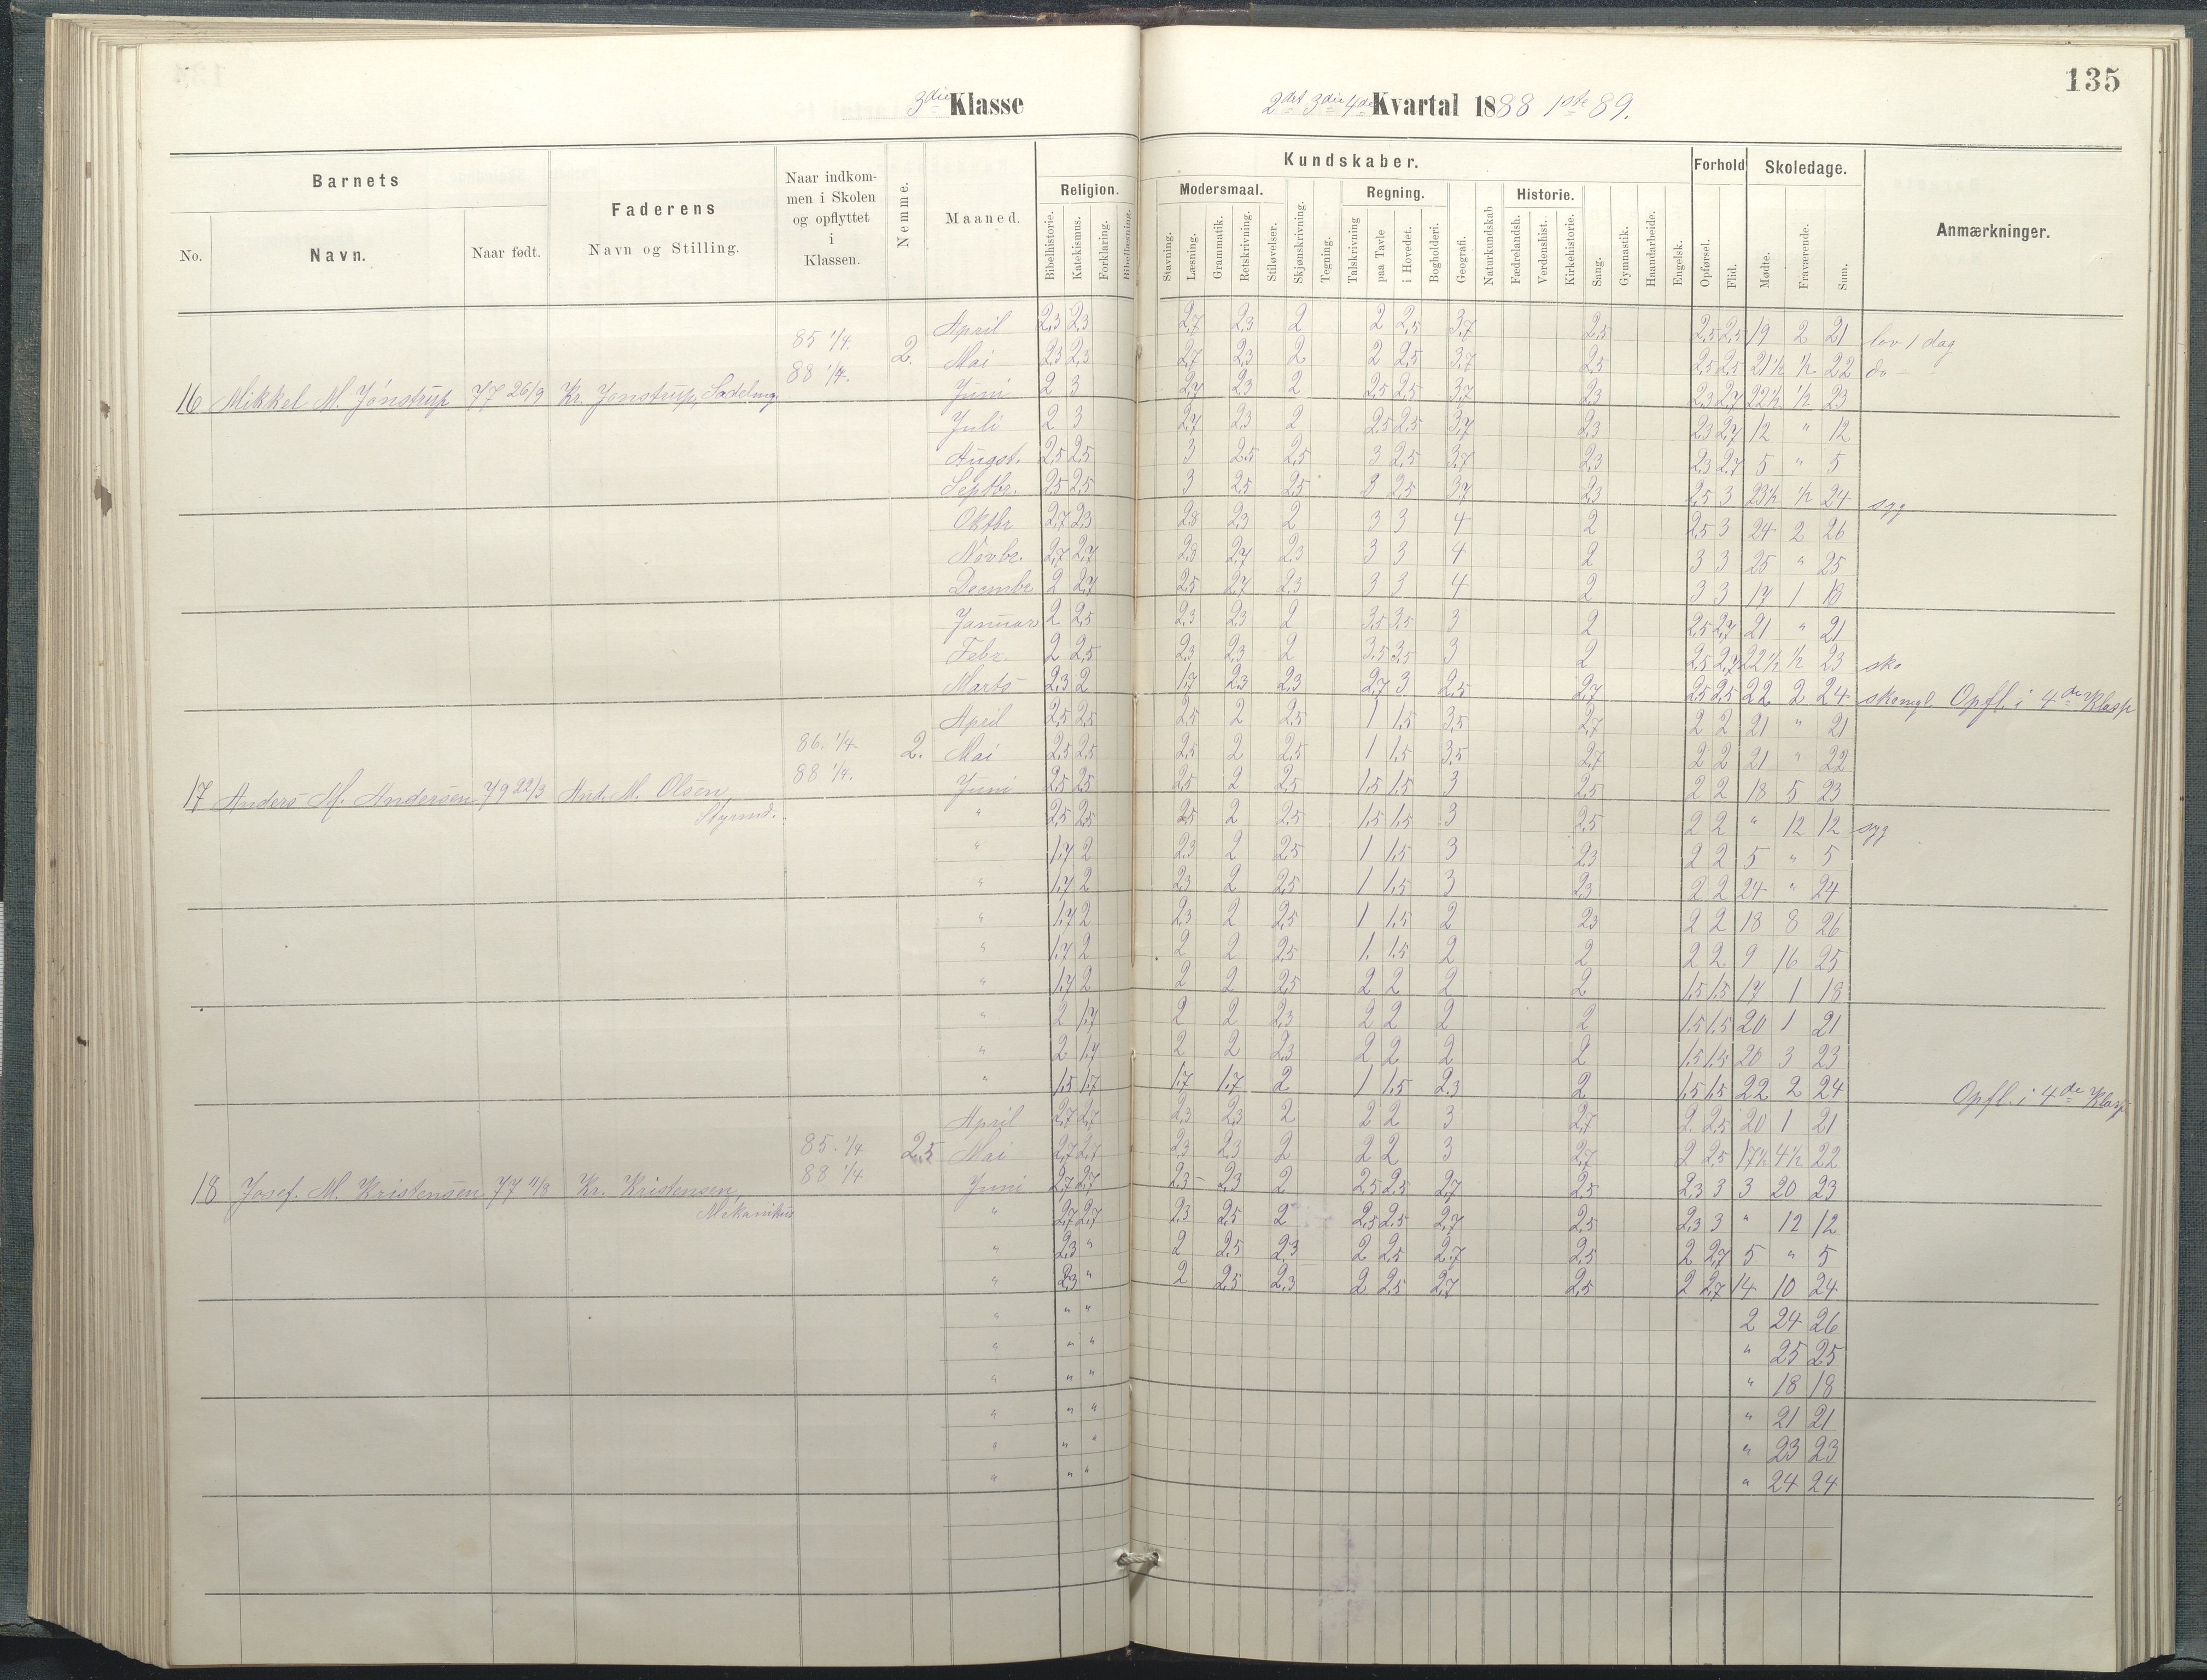 135
3die Klasse
2det 3die 4de Kvartal 1888 1ste 89.
Barnets
Faderens
Naar indkommen i Skolen og opflyttet i Klassen.
Nemme.
Maaned.
Religion.
Kundskaber.
Forhold
Skoledage.
Anmærkninger.
Modersmaal.
Regning.
Historie.
No.
Navn.
Naar født.
Navn og Stilling.
Bibelhistorie.
Katekismus.
Forklaring.
Bibellæsning.
Stavning.
Læsning.
Grammatik.
Retskrivning.
Stiløvelser.
Skjønskrivning.
Tegning.
Talskrivning
paa Tavle
i Hovedet.
Bogholderi.
Geografi.
Naturkundskab
Fædrelandsh.
Verdenshist.
Kirkehistorie.
Sang.
Gymnastik.
Haandarbeide.
Engelsk.
Opførsel.
Flid.
Mødte.
Fraværende.
Sum.
16 Mikkel M. Jonstrup 77 26/9 Kr. Jonstrup, 85 1/4. 88 1/4. 2.
April 2,3 2,3 2,7 2,3 2 2 2,5 3,7 2,5 2,5 2,5 19 2 21 lov 1 dag
Mai 2,3 2,3 2,7 2,3 2 2 2,5 3,7 2,5 2,5 2,5 21½ ½ 22 do
Juni 2 3 2,7 2,3 2 2,5 2,5 3,7 2,3 2,3 2,7 22½ ½ 23
Juli 2 3 2,7 2,3 2 2,5 2,5 3,7 2,3 2,3 2,7 12 " 12
Augst. 2,5 2,5 3 2,5 2,5 3 2,5 3,7 2,3 2,3 2,7 5 " 5
Septbr. 2,5 2,5 3 2,5 2,5 3 2,5 3,7 2,3 2,5 3 23½ ½ 24 syg
Oktbr 2,7 2,3 2,8 2,3 2 3 3 4 2 2,5 3 24 2 26
Novbr. 2,7 2,7 2,8 2,7 2,3 3 3 4 2 3 3 25 " 25
Decembr 2 2,7 2,5 2,7 2,3 3 3 4 2 3 3 17 1 18
Januar 2 2,5 2,3 2,3 2 3,5 3,5 3 2 2,5 2,7 21 " 21
Febr. 2 2,5 2,3 2,3 2 3,5 3,5 3 2 2,5 2,7 22½ ½ 23 sko
Marts 2,3 2 1,7 2,3 2,3 2,7 3 2,5 2,7 2,5 2,5 22 2 24 skomgl. Opfl. i 4de Klasse
17 Anders M. Andersen 79 22/3 And. M. Olsen, Styrmd. 86. 1/4. 88 1/4. 2.
April 2,5 2,5 2,5 2 2,5 1 1,5 3,5 2,7 2 2 21 " 21
Mai 2,5 2,5 2,5 2 2,5 1 1,5 3,5 2,7 2 2 21 " 22
Juni 2,5 2,5 2,5 2 2,5 1,5 1,5 3 2,5 2 2 18 5 23
" 2,5 2,5 2,5 2 2,5 1,5 1,5 3 2,5 2 2 " 12 12 syg
" 1,7 2 2,3 2 2,5 1 1,5 3 2,3 2 2 5 " 5
" 1,7 2 2,3 2 2,5 1 1,5 3 2,3 2 2 24 " 24
" 1,7 2 2,3 2 2,5 1 1,5 2 2,3 2 2 18 8 26
" 1,7 2 2 2 2,5 1. 1,5 2 2 2 2 9 16 25
" 1,7 2 2 2 2,5 2 2 2 2 1,5 1,5 17 1 18
" 2 1,7 2 2 2,3 2 2 2 2 1,5 1,5 20 1 21
" 2 1,7 2 2 2,3 2 2 2 2 1,5 1,5 20 3 23
" 1,5 1,7 1,7 1,7 2 1 1,5 2,3 2 1,5 1,5 22 2 24 Opfl. i 4de Klasse
18 Josef. M. Kristensen 77 11/8 Kr. Kristensen, Mekanikus 85. 1/4 88 1/4. 2,5
April 2,7 2,7 2,3 2,3 2 2 2 3 2,7 2 2,5 20 1 21
Mai 2,7 2,7 2,3 2,3 2 2 2 3 2,7 2 2,5 17½ 4½ 22
Juni 2,7 2,7 2,3 2,3 2 2,5 2,5 2,7 2,5 2,3 3 3 20 23
" 2,7 2,7 2,3 2,5 2 2,5 2,5 2,7 2,5 2,3 3 " 12 12
" 2,3 " 2 2,5 2,3 2 2,5 2,7 2,5 2 2,7 5 " 5
" 2,3 " 2 2,5 2,3 2 2,5 2,7 2,5 2 2,7 14 10 24
" " " 2 24 26
" " " " 25 25
" " " " 18 18
" " " " 21 21
" " " " 23 23
" " " " 24 24